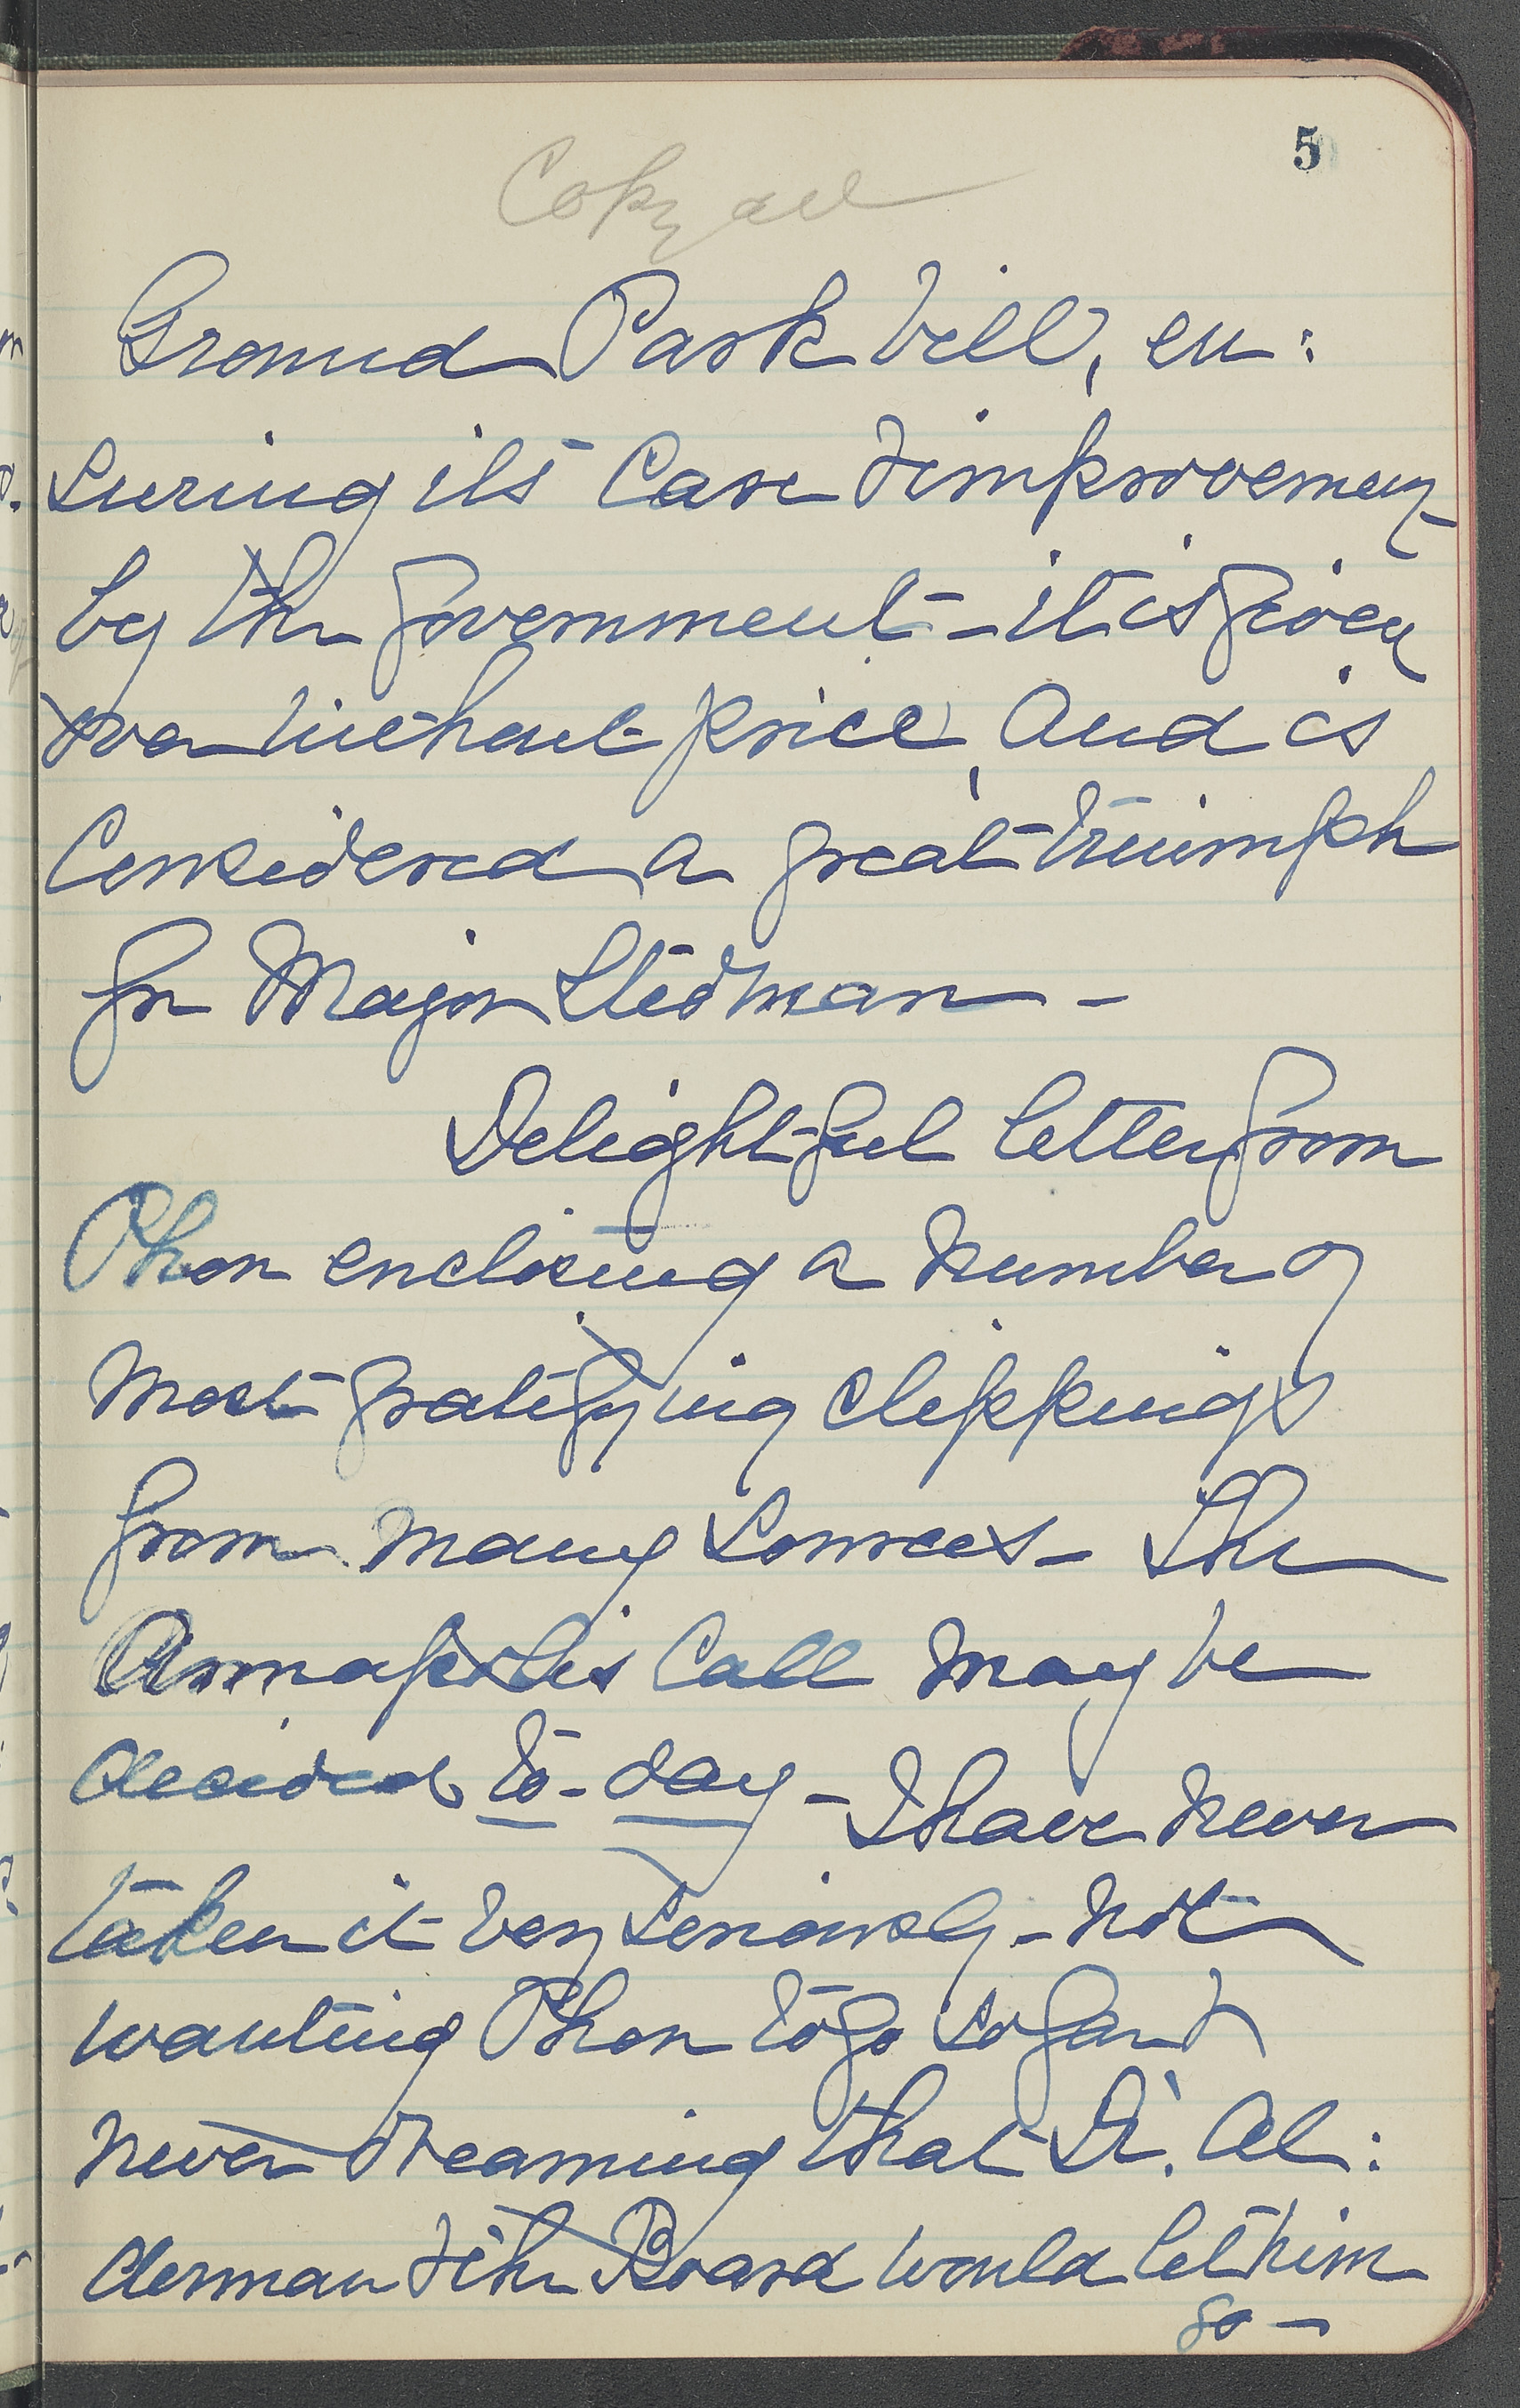 5
Copy all
Ground Park bill, en:
suring its Care & improvement
by the Government - it is given
over without price, and is
Considered a great triumph
for Major Stedman -
Delightful letter from
Phon enclosing a number of
most gratifying clippings
from many sources - The
Annapolis Call may be
decided to-day - I have never
taken it very seriously - not
wanting Phon to go so far &
never dreaming that Dr. Al:
derman & the Board would let him
go -